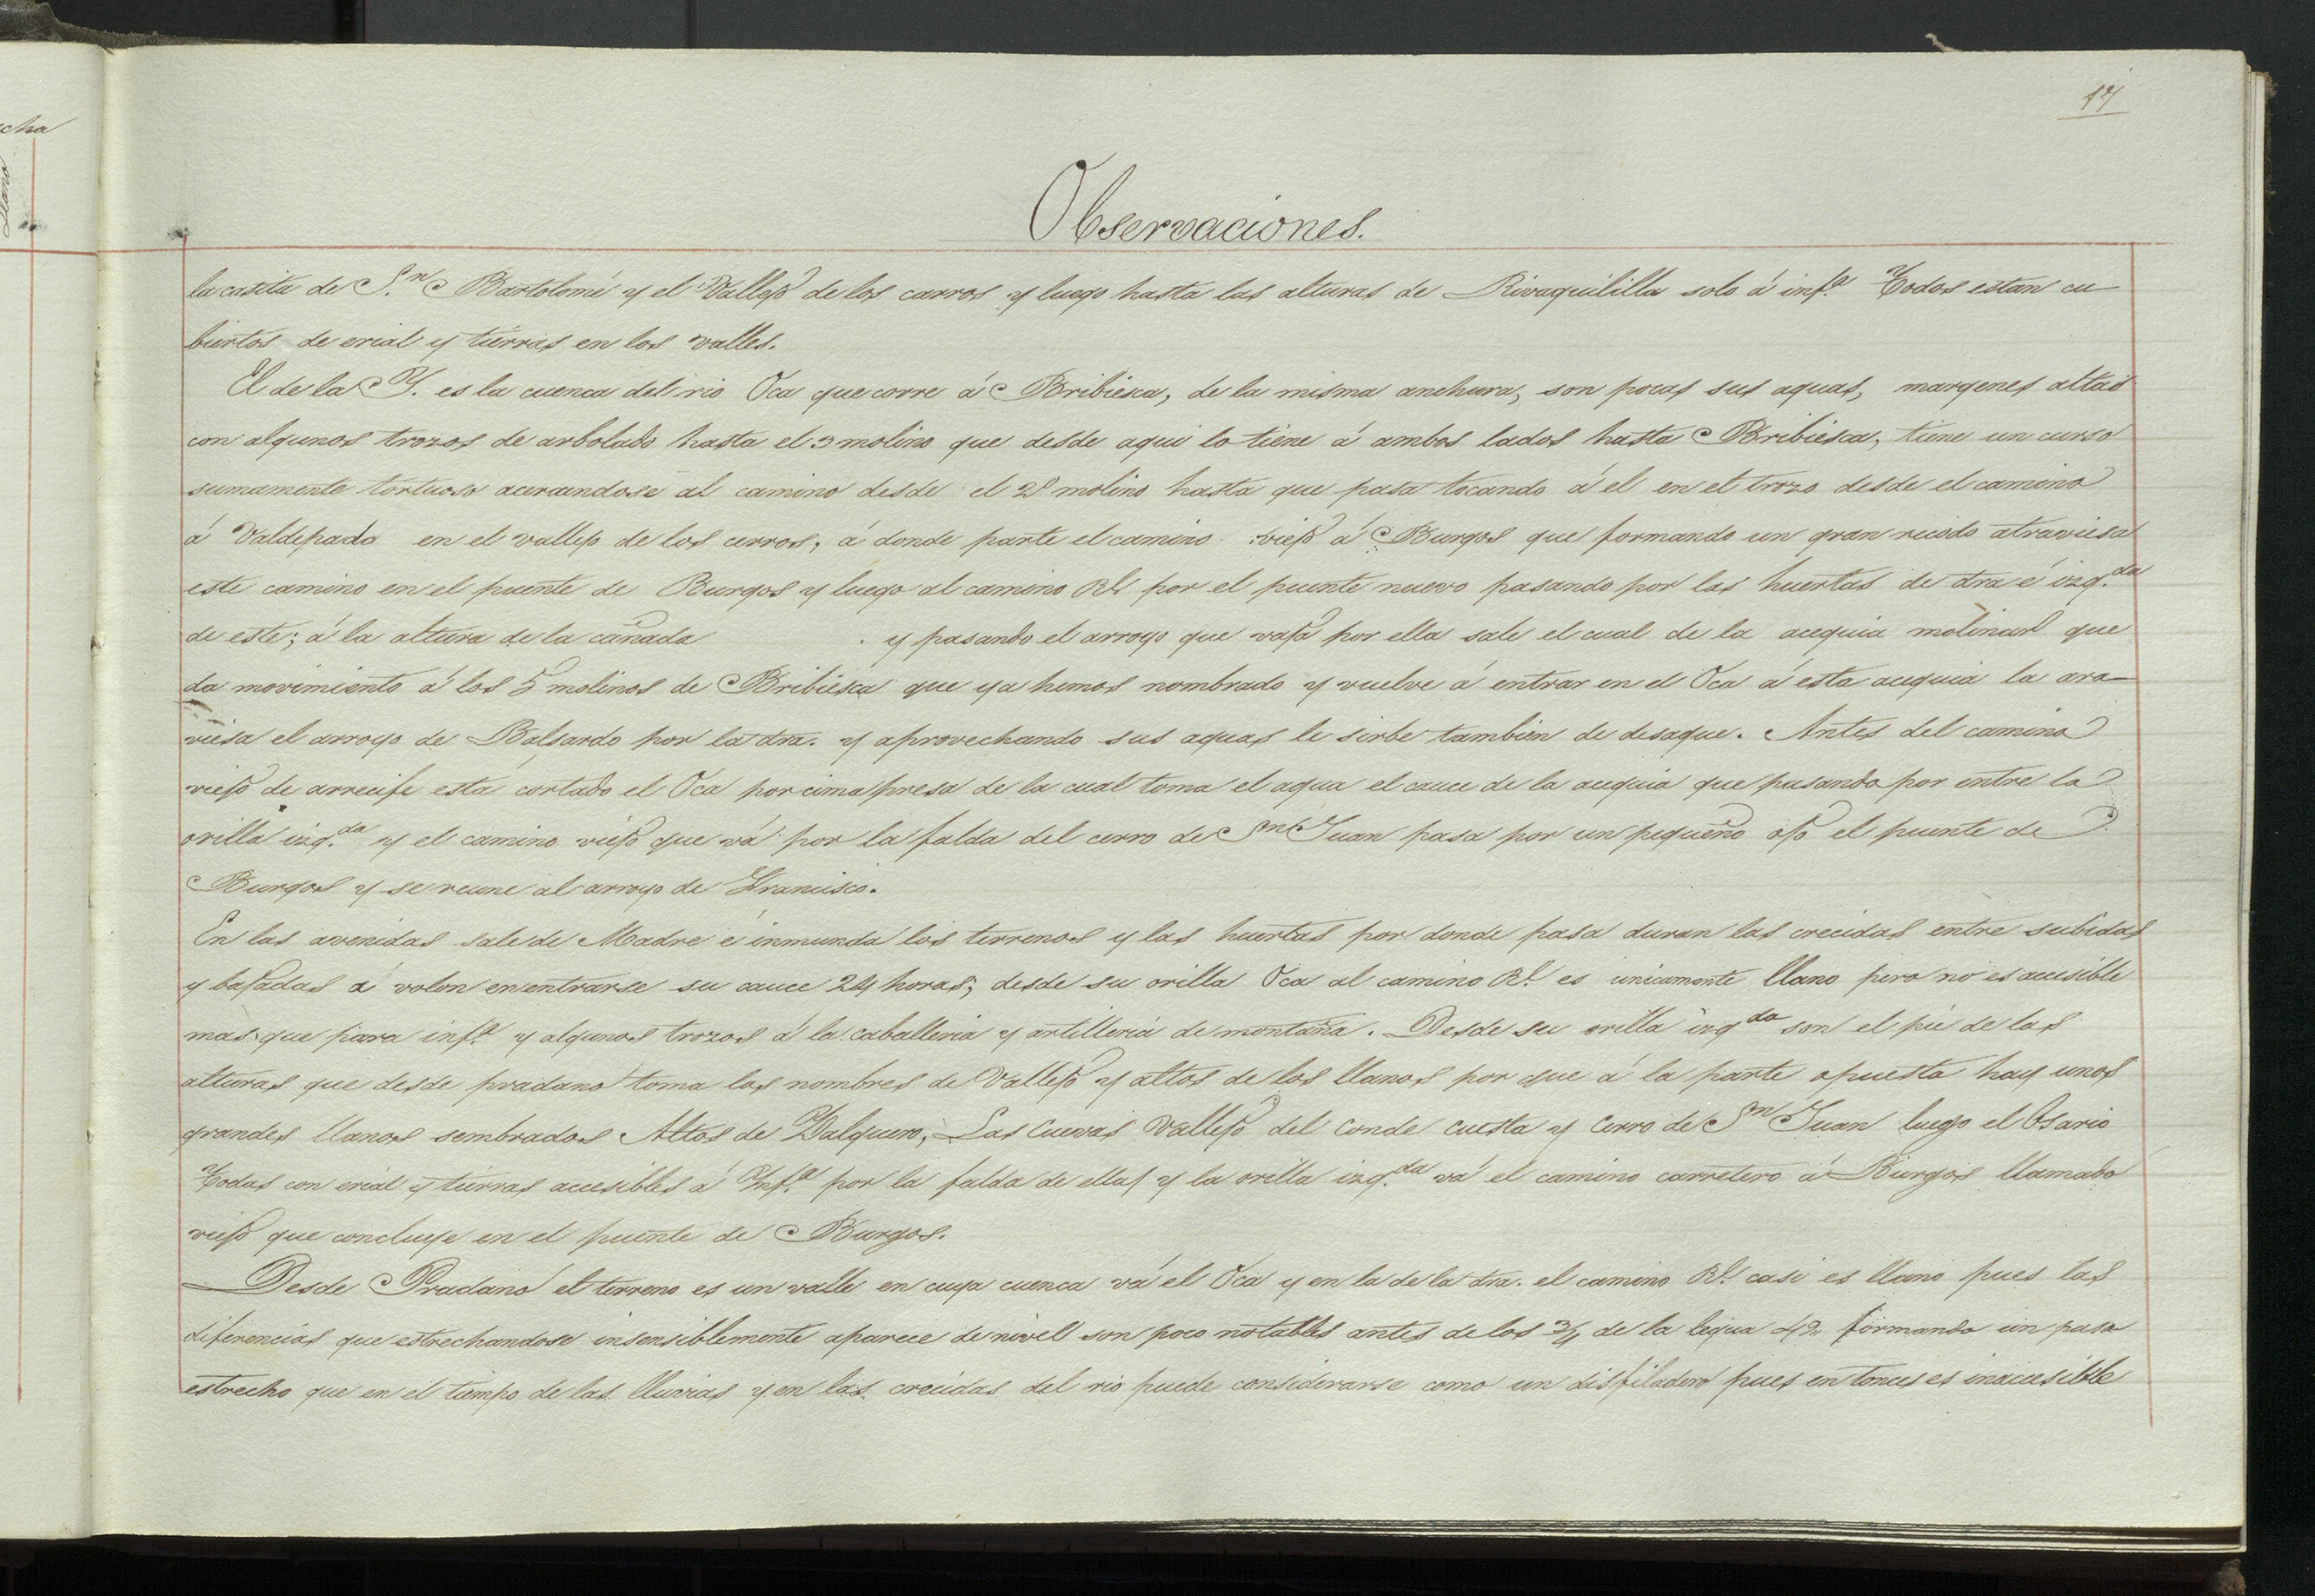 17
Observaciones.
la casita de S.n Bartolomé y el Vallejo de los carros y luego hasta las alturas de Rivaquililla solo á inf.a Todos estan cu
biertos de erial y tierras en los valles.
El de la Y. es la cuenca del rio Oca que corre á Bribiesca, de la misma anchura, son pocas sus aguas, margenes altas
con algunos trozos de arbolado hasta el 3 molino que desde aqui lo tiene á ambos lados hasta Bribiesca, tiene un curso
sumamente tortuoso acercandose al camino desde el 2º molino hasta que pasa tocando á él en el trozo desde el camino
á Valdepada en el vallejo de los cerros, á donde parte el camino viejo á Burgos que formando un gran recodo atraviesa
este camino en el puente de Burgos y luego al camino Rl por el puente nuevo pasando por las huertas de dra é izq.da
de este; á la altura de la cañada . y pasando el arroyo que vaja por ella sale el cual de la acequia molinar que
da movimiento á los 5 molinos de Bribiesca que ya hemos nombrado y vuelve á entrar en el Oca á esta acequia la ara
viesa el arroyo de Balsardo por la dra. y aprovechando sus aguas le sirbe tambien de desague. Antes del camino
viejo de arrecife esta cortado el Oca por cima presa de la cual toma el agua el cauce de la acequia que pasando por entre la
orilla izq.da y el camino viejo que vá por la falda del cerro de Sn Juan pasa por un pequeño ojo el puente de
Burgos y se reune al arroyo de Francisco.
En las avenidas sale de Madre é inmunda los terrenos y las huertas por donde pasa duran las crecidas entre subidas
y bajadas á volon enentrarse su cauce 24 horas; desde su orilla Oca al camino Rl es unicamente llano pero no es accesible
mas que para inf.a y algunos trozos á la caballeria y artilleria de montaña. Desde su orilla izqda son el pié de las
alturas que desde pradano toma los nombres de Vallejo y altos de los llanos por que á la parte opuesta hay unos
grandes llanos sembrados Altos de Valquero, Las Cuevas Vallejo del Conde cuesta y Cerro de Sn Juan luego el Osario
Todas con erial y tierras accesibles á Inf.a por la falda de ellas y la orilla izq.da vá el camino carretero á Burgos llamado
viejo que concluye en el puente de Burgos.
Desde Pradano el terreno es un valle en cuya cuenca vá el Oca y en la de la dra. el camino Rl casi es llano pues las
diferencias que estrechandose insensiblemente aparece de nivel son poco notables antes de los 3/4 de la legua 42 formando un paso
estrecho que en el tiempo de las lluvias y en las crecidas del rio puede considerarse como un disfiladero pues entonces es inaccesible